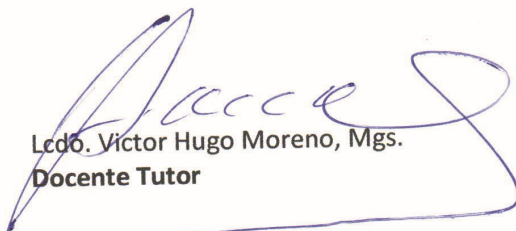 Lcdo. Victor Hugo Moreno, Mgs.
Docente Tutor